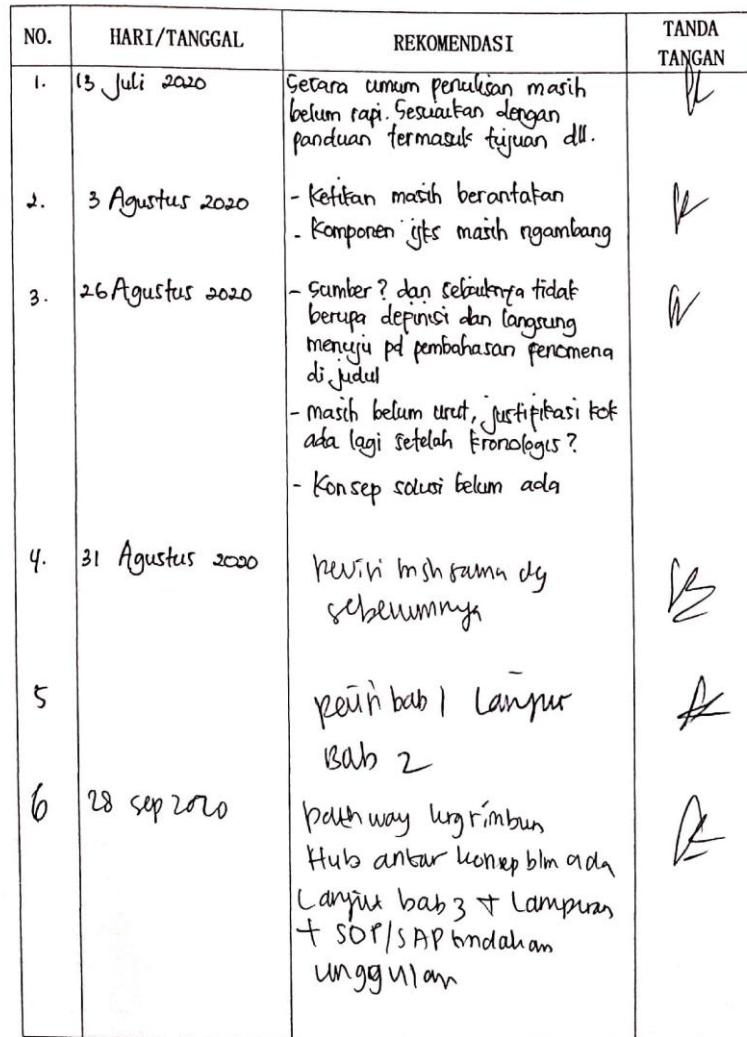 NO. HARI/TANGGAL REKOMENDASI TANDA
TANGAN
1. 13 Juli 2020 Secara umum penulisan masih
belum rapi. Sesuaikan dengan
panduan termasuk tujuan dll.
2. 3 Agustus 2020 - Ketikan masih berantakan
- Komponen ijks masih ngambang
3. 26 Agustus 2020 - Sumber? dan sebaiknya tidak
berupa definisi dan langsung
menuju pd pembahasan fenomena
di judul
- masih belum urut, justifikasi kok
ada lagi setelah kronologis?
- Konsep solusi belum ada
4. 31 Agustus 2020 revisi msh sama dg
sebelumnya
5 revisi bab 1 Lanjut
Bab 2
6 28 sep 2020 pathway krg rimbun
Hub antar konsep blm ada
Lanjut bab 3 + Lampiran
+ SOP/SAP tindakan
unggulan